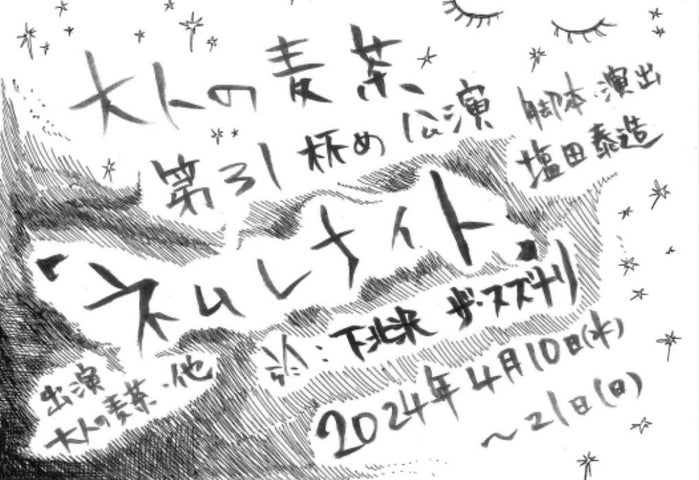 大人の麦茶
第31杯め公演
脚本・演出
塩田泰造
"ネムレナイト"
於:下北沢 ザ・スズナリ
出演
大人の麦茶・他
2024年4月10日(水)
～21日(日)